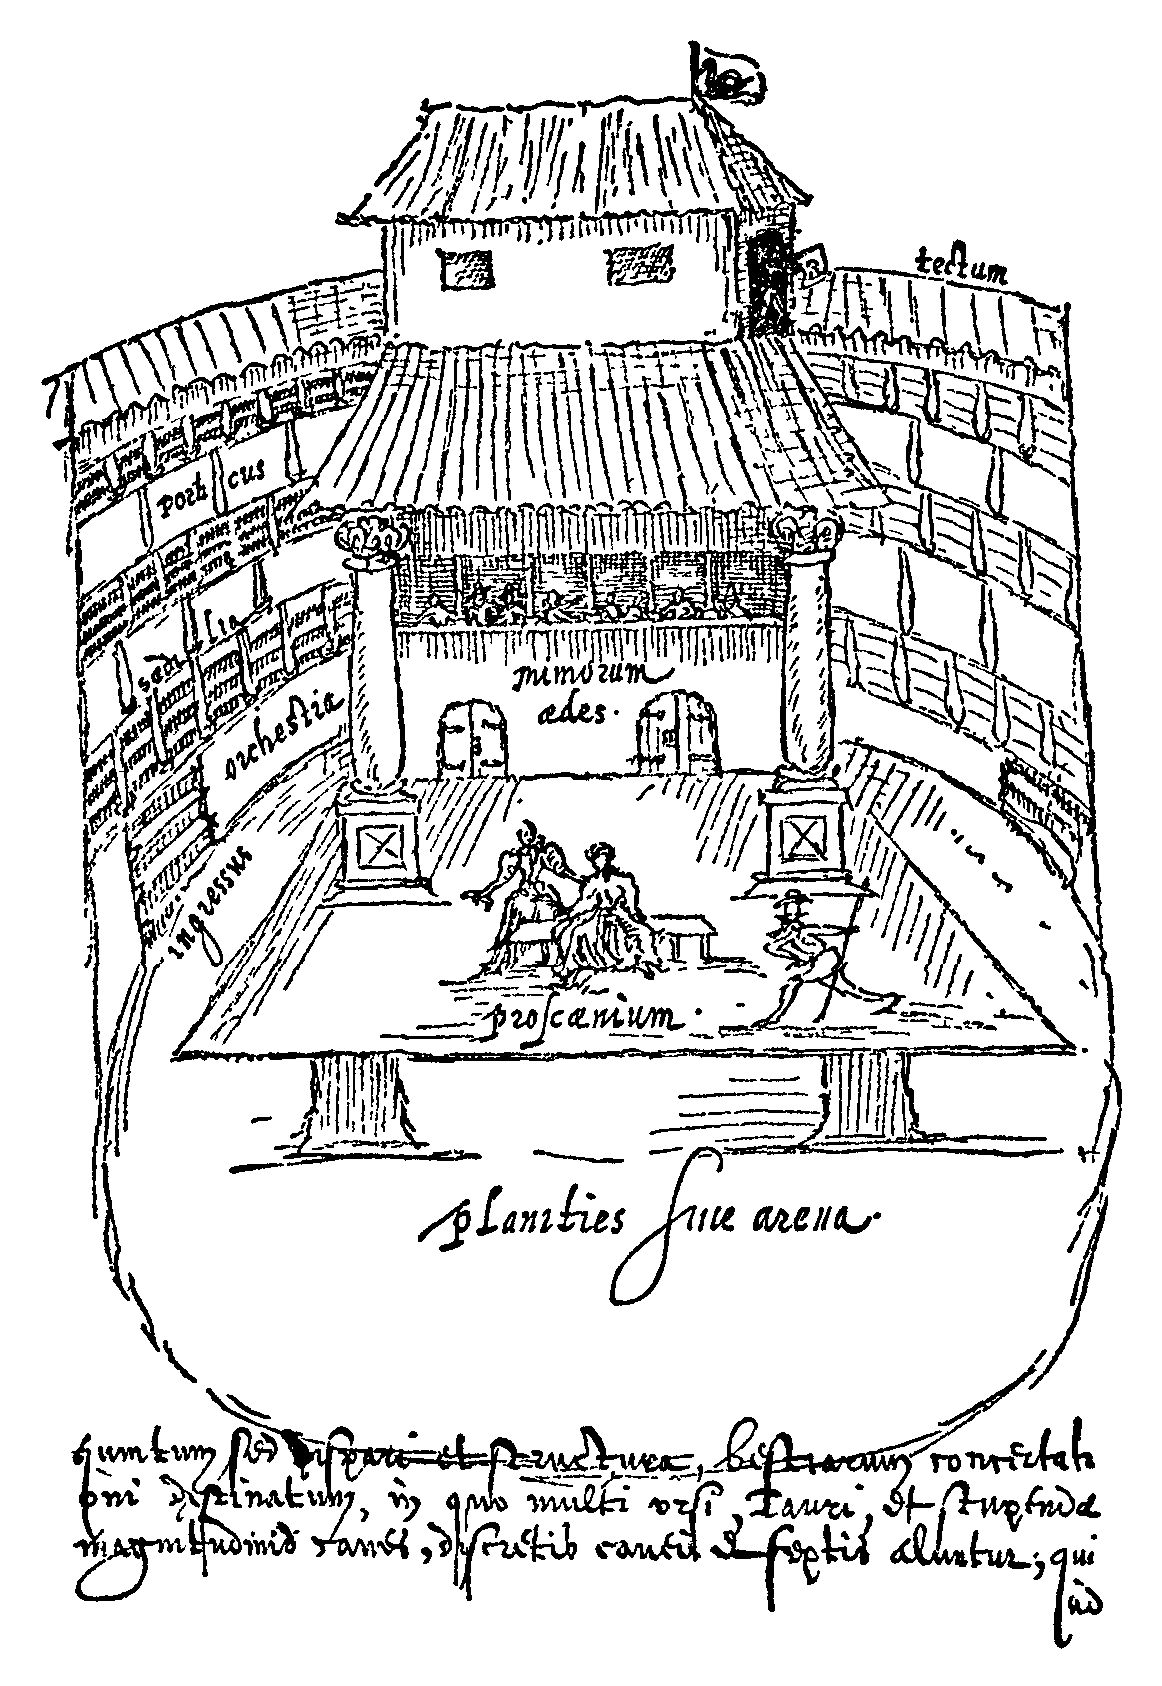 tectum
porticus
sedilia
orchestra
mimorum
ædes.
ingressus
proscænium.
planities siue arena.
quintum, sed dispari et structura, bestiarum concertati
oni destinatum, in quo multi ursi, Tauri, et stupendæ
magnitudinis canes, discretis caueis et septis aluntur, qui
ad